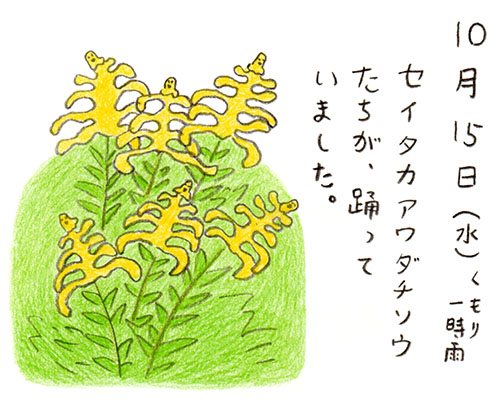 10月15日(水)くもり一時雨
セイタカアワダチソウ
たちが、踊って
いました。